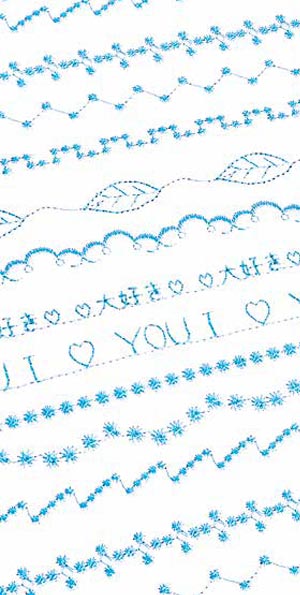 好き♡♡大好き♡♡大好き♡
U I ♡ YOU I ♡ Y